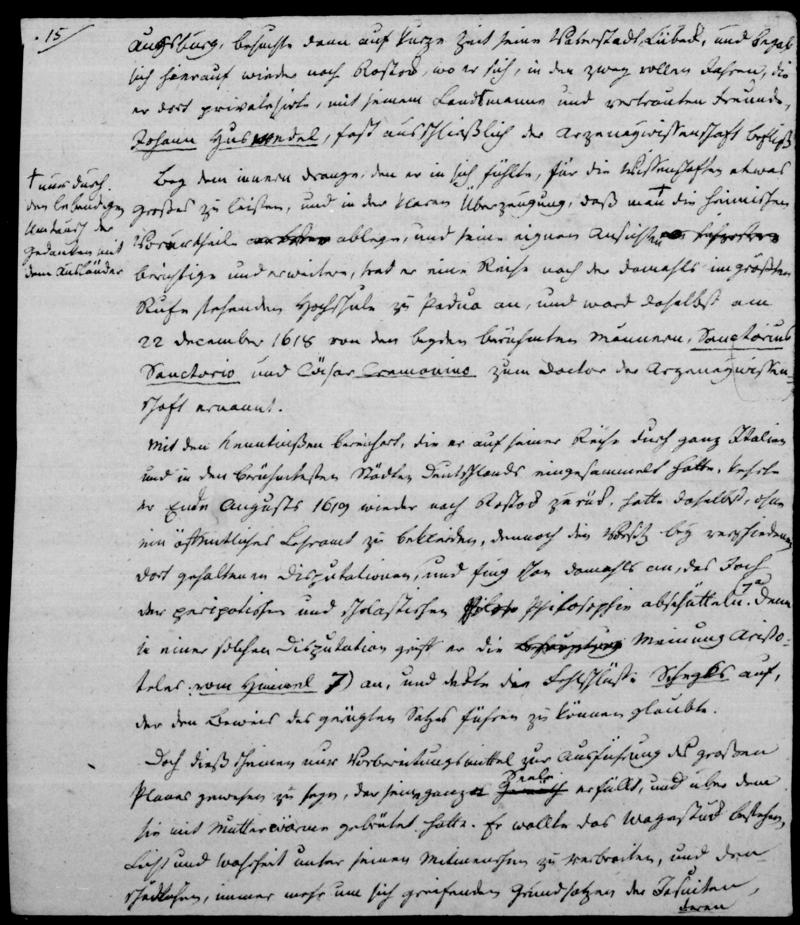 15/
Augsburg, besuchte dann auf kurze Zeit seine Vaterstadt Lübeck, und begab
sich hierauf wieder nach Rostock, wo er sich, in den zwey vollen Jahren, die
er dort privatisirte, mit seinem Landsmanne und vertrauten Freunde,
Johann Huswedel, fast ausschließlich der Arzeneywissenschaft befliß
Bey dem innern Drange, den er in sich fühlte, für die Wissenschaften etwas
großes zu leisten, und in der klaren Überzeugung, daß man † die heimischen
Vorurtheile ablege, und seine eignen Ansichten
berichtige und erweitere, trat er eine Reise nach der damahls im größten
Rufe stehenden Hochschule zu Padua an, und ward daselbst am
22 December 1618 von den beyden berühmten Männern, Sanctorius
Sanctorio und Cäsar Cremonino zum Doctor der Arzeneywissen-
schaft ernannt.
† nur durch
den lebendigen
Umtausch der
Gedanken mit
dem Ausländer
Mit den Kenntnißen bereichert, die er auf seiner Reise durch ganz Italien
und in den berühmtesten Städten Deutschlands eingesammelt hatte, kehrte
er Ende Augusts 1619 wieder nach Rostock zurück, hatte daselbst, ohne
ein öffentliches Lehramt zu bekleiden, dennoch den Vorsitz bey verschiedenen
dort gehaltenen Disputationen, und fing schon damahls an, das Joch
der peripatischen und scholastischen Philosophie abzuschütteln. Denn
in einer solchen Disputation griff er die Behauptung Meinung Aristo-
teles vom Himmel 7) an, und deckte die Fehlschlüße Schegks auf,
der den Beweis des gerügten Satzes führen zu können glaubte.
Doch dieß schienen nur Vorbereitungsmittel zur Ausführung des großen
Planes gewesen zu seyn, der seine ganze Seele erfüllt, und über dem
sie mit Mutterwärme gebrütet hatte. Er wollte das Wagestück bestehen,
Licht und Wahrheit unter seinen Mitmenschen zu verbreiten, und den
schädlichen, immer mehr um sich greifenden Grundsätzen der Jesuiten,
deren